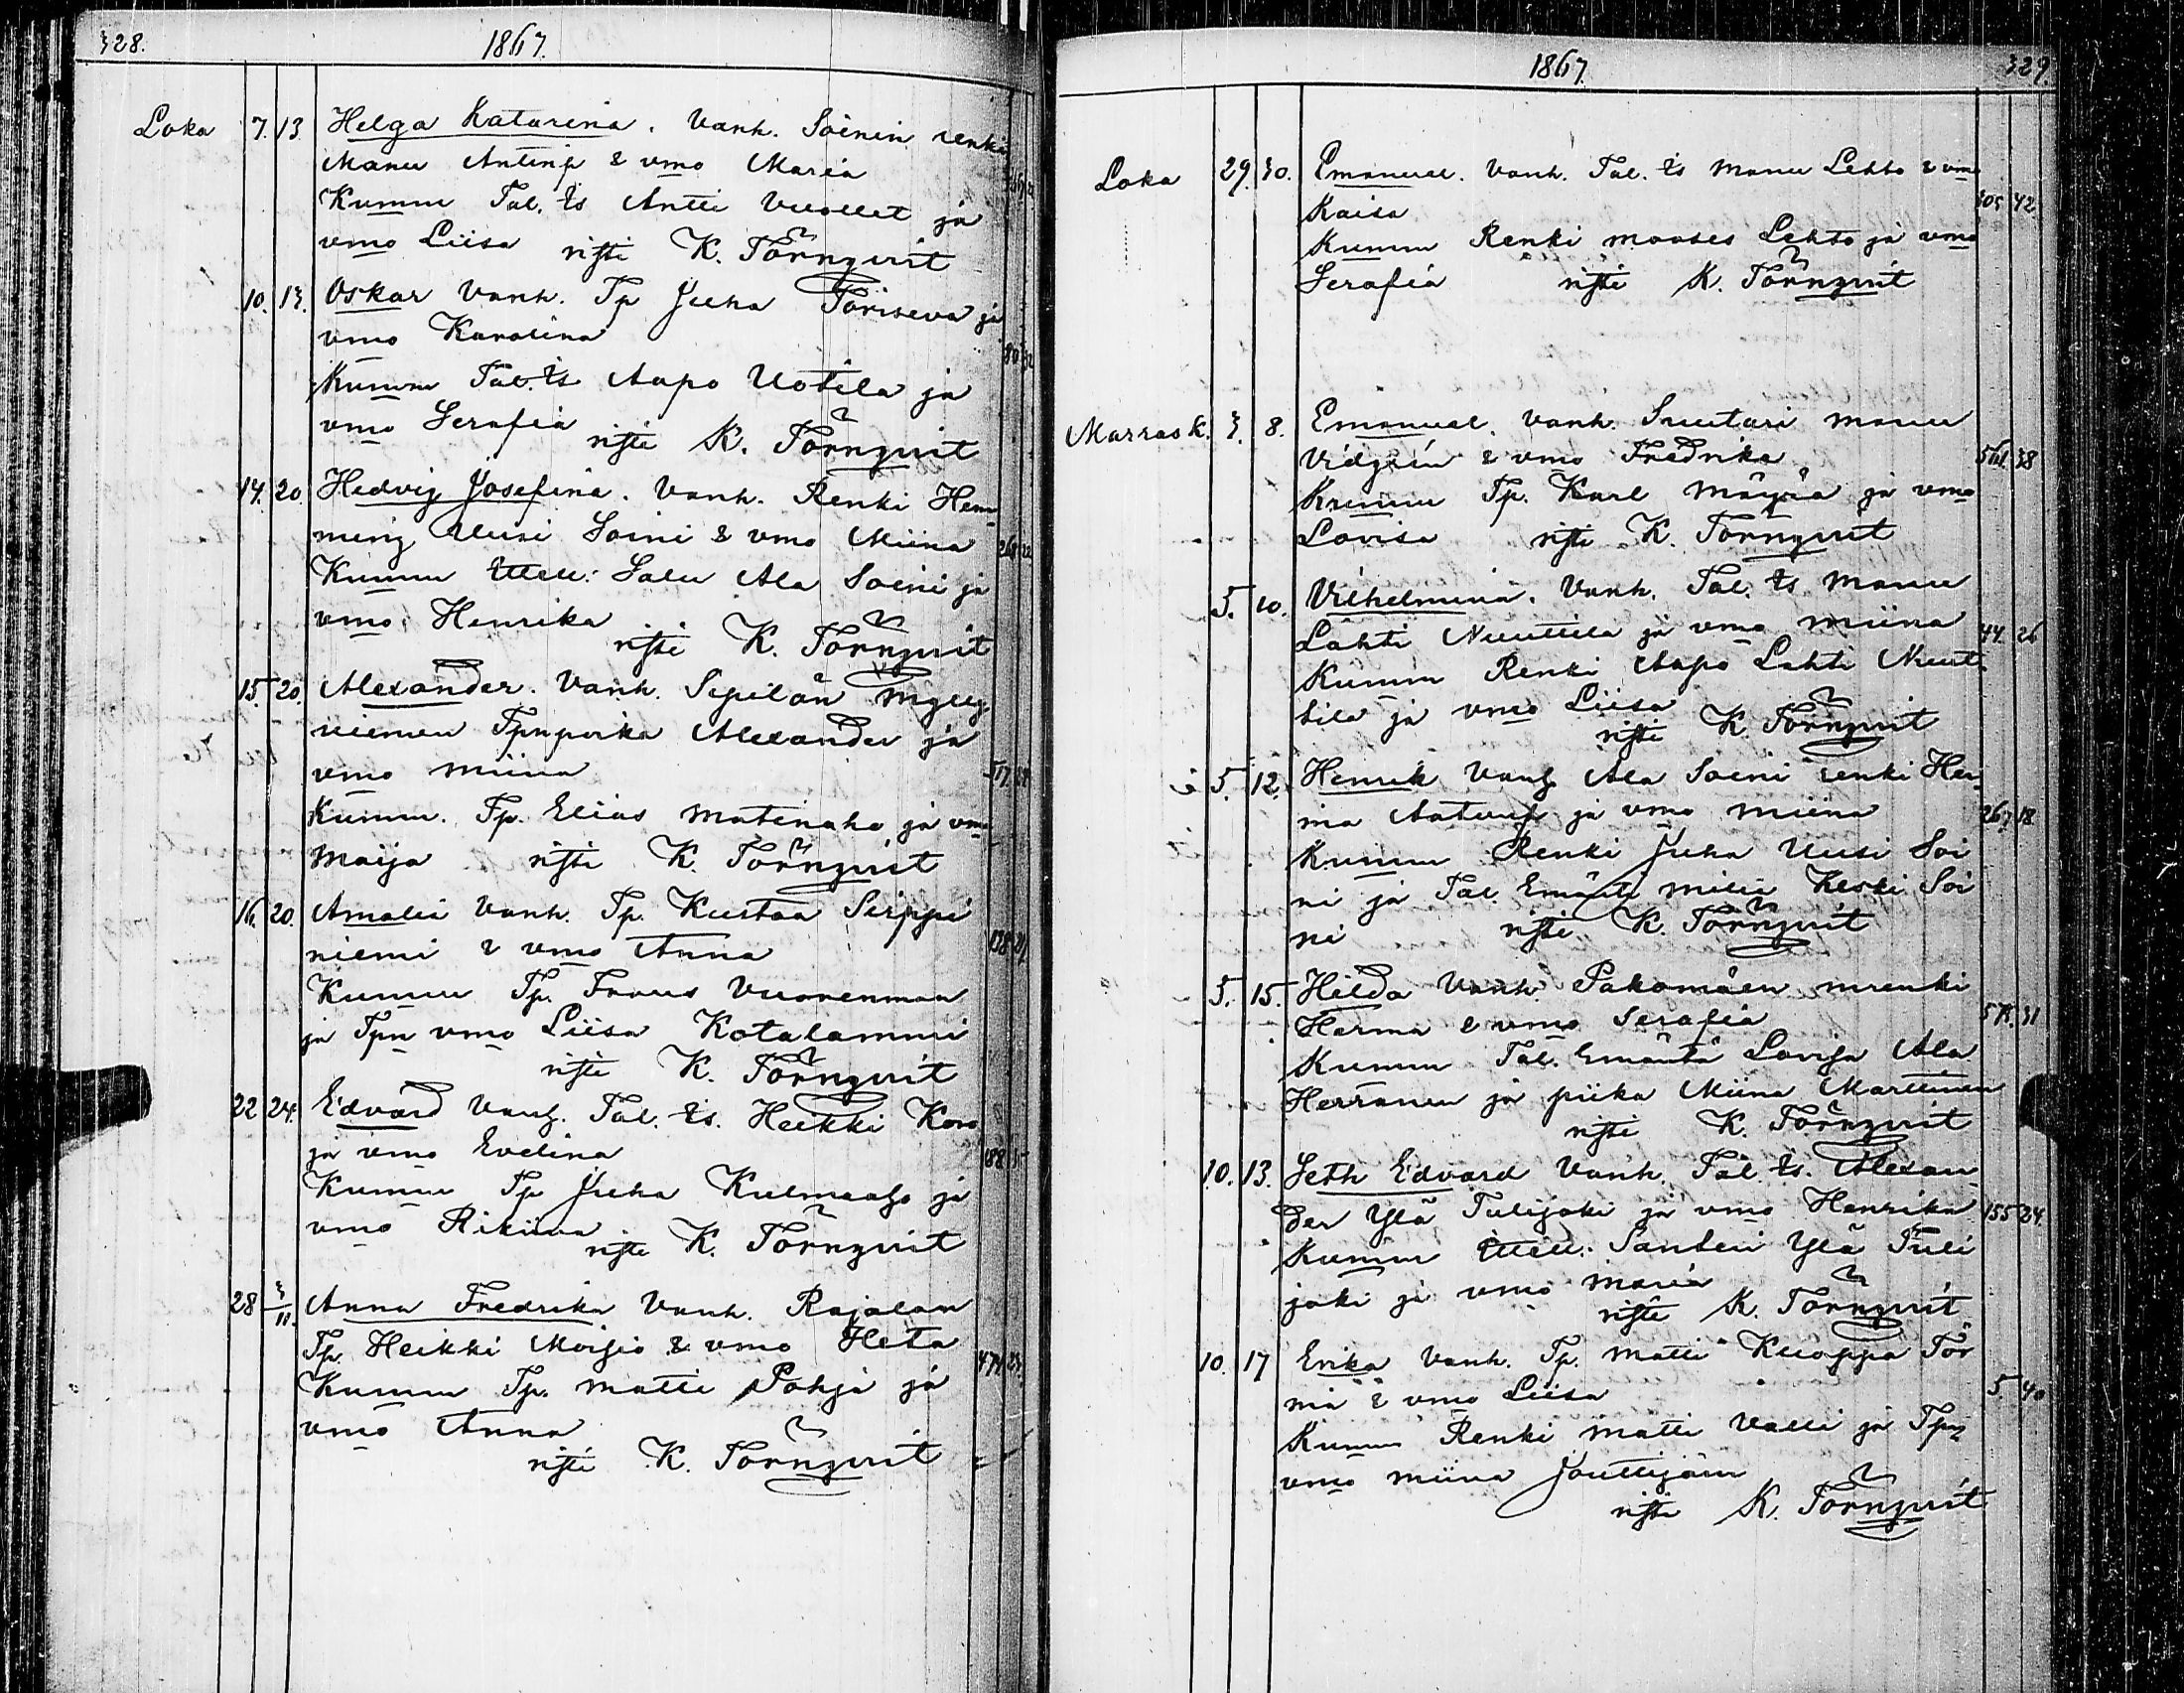 328.
1867.
Loka 7. 13. Helga Katarina. Vanh. Soinin renki
Manu Antinp & vmo Maria
Kumm Tal. ts Antti Vuollet ja
vmo Liisa risti K. Törnqvist
10. 13. Oskar Vanh. Tp Juha Töriseva ja
vmo Karolina 80
Kumm Tal. ts Aapo Uotila ja
vmo Serafia risti K. Törnqvist
14. 20. Hedvig Josefina. Vanh. Renki Hem
ming Uusi Soini & vmo Miina 268 22
Kumm Salu Ala Soini ja
vmo Henrika
risti K. Törnqvist
15. 20. Alexander. Vanh. Sepilän Mylly
niemen Tpnpoika Alexander ja
vmo Miina
Kumm. Tp. Elias Matinaho ja vmo
Maija risti K. Törnqvist
16. 20. Amalia Vanh. Tp. Kustaa Sirppi
niemi & vmo Anna 138
Kumm Tp. Frans Vuorenmaa
ja Tpn vmo Liisa Kotalammi
risti K. Törnqvist
22 24. Edvard Vanh. Tal. ts. Heikki Koro
ja vmo Evelina 188
Kumm Tp Juha Kulmaaho ja
vmo Rikiina risti K. Törnqvist
28 3/11. Anna Fredrika Vanh. Rajalan
Tp. Heikki Moisio & vmo Heta
Kumm Tp. Matti Pohja ja 474 23.
vmo Anna
risti K. Törnqvist
1867.
329.
Loka 29. 30. Emanuel. Vanh. Tal. ts Manu Lehto & vmo
Kaisa 305 42
Kumm Renki Mooses Lehto ja vmo
Serafia risti K. Törnqvist
Marrask. 3. 8. Emanuel. Vanh. Suutari Manu
Vidgrén & vmo Fredrika 561 38
Kumm Tp. Karl Mäyrä ja vmo
Lovisa risti K. Törnqvist
5. 10. Vilhelmina. Vanh. Tal. ts Manu
Lahti Nuuttila ja vmo Miina 44. 26
Kumm Renki Aapo Lahti Nuut
tila ja vmo Liisa
risti K Törnqvist
5. 12. Henrik Vanh Ala Soini renki Her
ma Aatunp ja vmo Miina 267 18
Kumm Renki Juha Uusi Soi
ni ja Tal. Emäntä Milia Keski Soi
ni risti K. Törnqvist
5. 15. Hilda Vanh Pakomäen mrenki
Herma & vmo Serafia 578. 31
Kumm Tal. Emäntä Lovisa Ala
Herranen ja piika Miina Marttinen
risti K. Törnqvist
10. 13. Seth Edvard Vanh. Tal. ts. Alexan
der Ylä Tulijoki ja vmo Henrika 155 24.
Kumm Santeri Ylä Tuli
joki ja vmo Maria
risti K. Törnqvist
10. 17 Erika Vanh. Tp. Matti Kuoppa Tör
mä & vmo Liisa 5 40
Kumm Renki Matti Valli ja Tpn
vmo Miina Jouttijärvi
risti K. Törnqvist